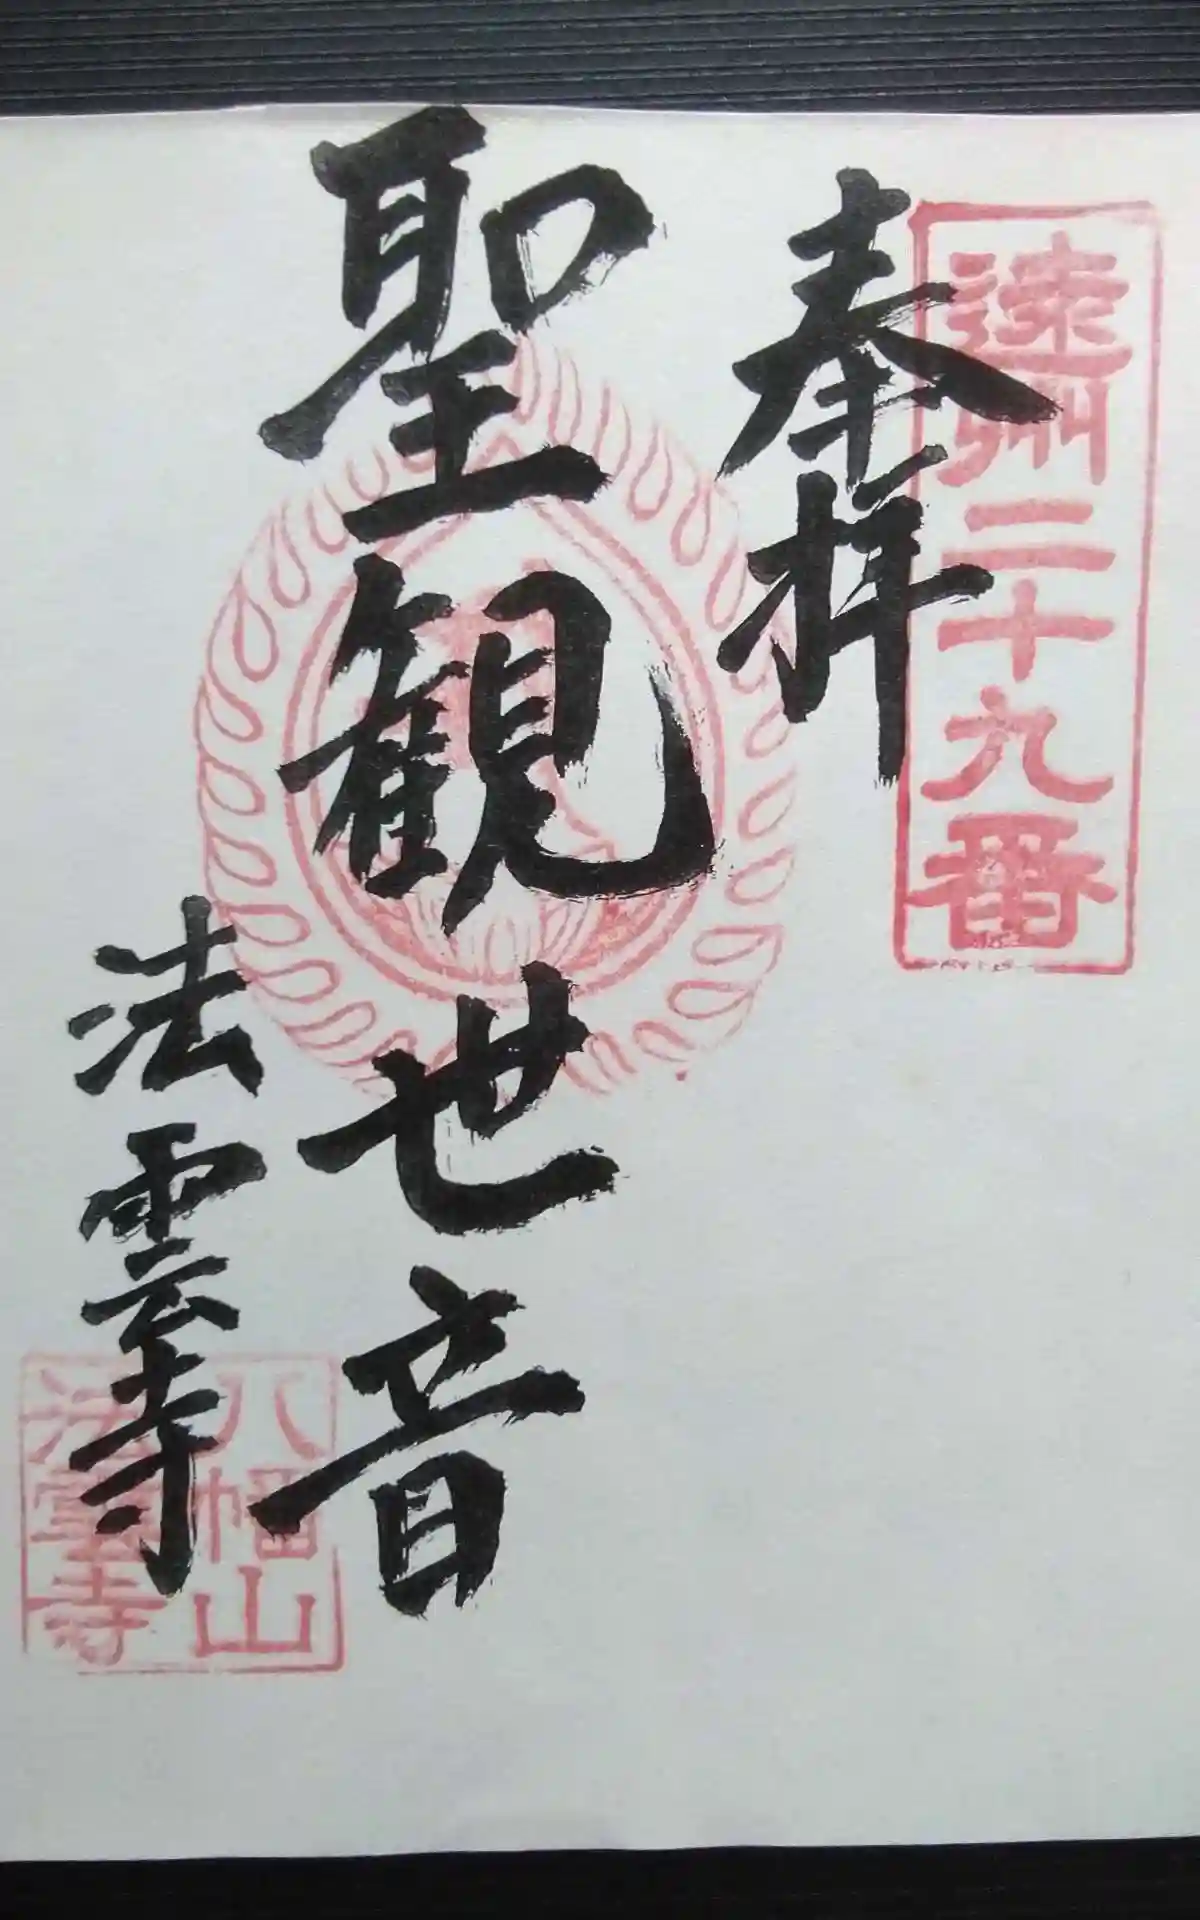 遠州二十九番
奉拝
聖観世音
法雲寺
八幡山
法雲寺